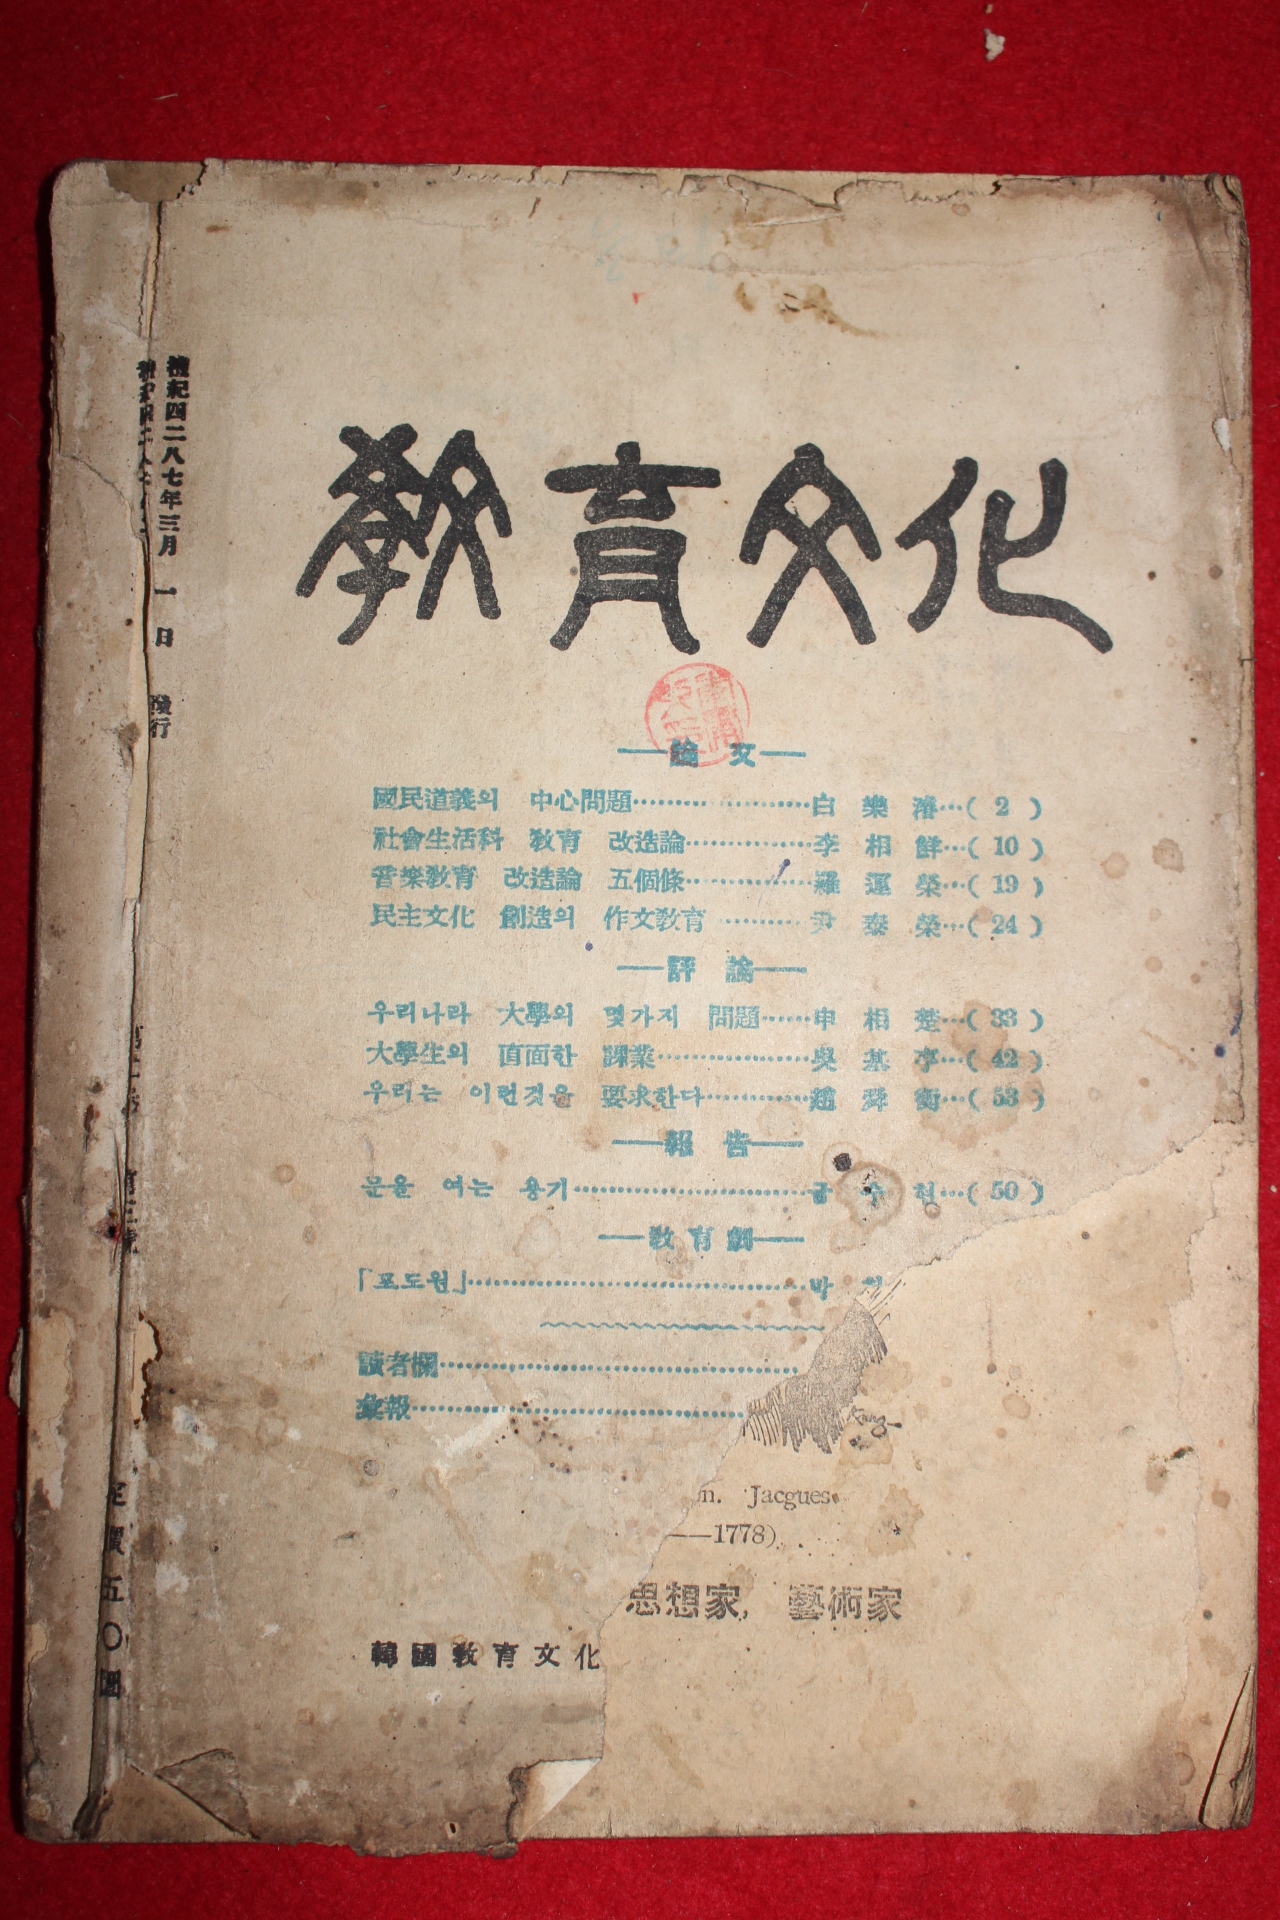 檀紀四二八七年三月 一 日 發行
敎育文化
──論 文──
國民道義의 中心問題…………………白 樂 濬…( 2 )
社會生活科 敎育 改造論……………李 相 鮮…( 10 )
音樂敎育 改造論 五個條……………羅 運 榮…( 19 )
民主文化 創造의 作文敎育…………尹 泰 榮…( 24 )
──評 論──
우리나라 大學의 몇가지 問題……申 相 楚…( 33 )
大學生의 直面한 課業………………吳 基 亨…( 42 )
우리는 이런것을 要求한다…………趙 舜 衡…( 53 )
──報 告──
문을 여는 용기………………………금 수 현…( 50 )
──敎育劇──
「포도원」…………………………………박
讀者欄……………………………………
彙報…………………………………
Jacgues
──1778)
思想家, 藝術家
韓國敎育文化
定價五〇圜